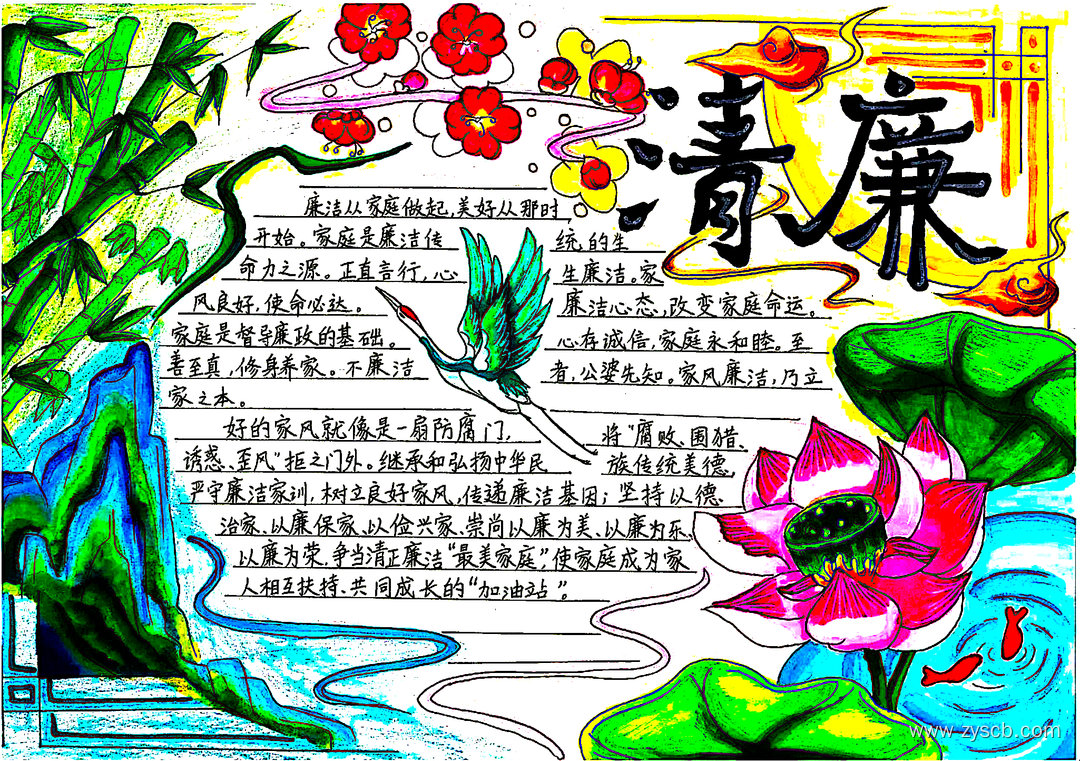 清廉
廉洁从家庭做起,美好从那时
开始。家庭是廉洁传 统的生
命力之源。正直言行,心 生廉洁。家
风良好,使命必达。 廉洁心态,改变家庭命运。
家庭是督导廉政的基础。 心存诚信,家庭永和睦。至
善至真,修身养家。不廉洁 者,公婆先知。家风廉洁,乃立
家之本。
好的家风就像是一扇防腐门, 将“腐败、围猎、
诱惑、歪风”拒之门外。继承和弘扬中华民 族传统美德,
严守廉洁家训,树立良好家风,传递廉洁基因;坚持以德、
治家、以廉保家、以俭兴家、崇尚以廉为美、以廉为乐、
以廉为荣,争当清正廉洁“最美家庭”,使家庭成为家
人相互扶持、共同成长的“加油站”。
www.zyscb.com